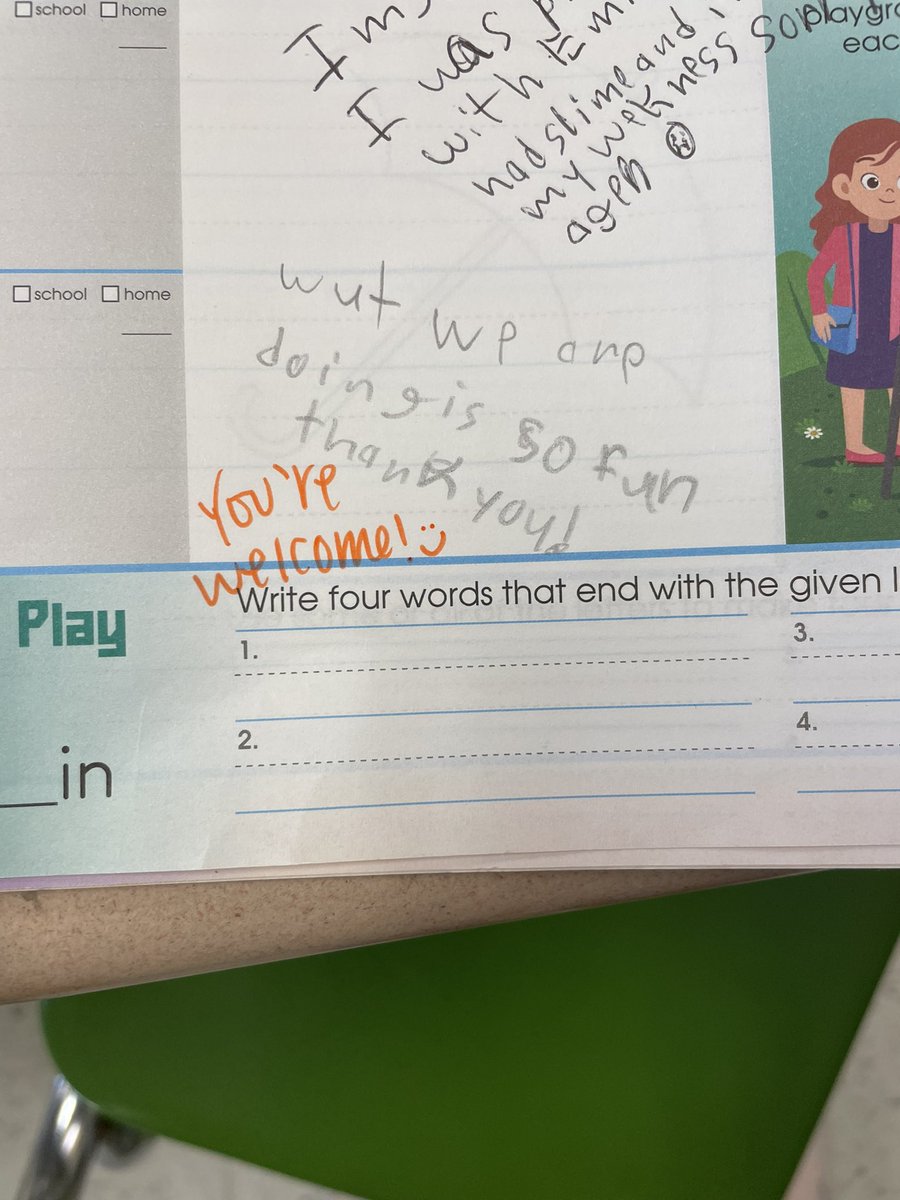 school home
Im
I was
with Em
had slime and
my wekness so
agen
playgr
eac
school home
wut we are
doing is so fun
thank you!
You're
welcome! :)
Play
Write four words that end with the given l
1.
2.
3.
4.
__in